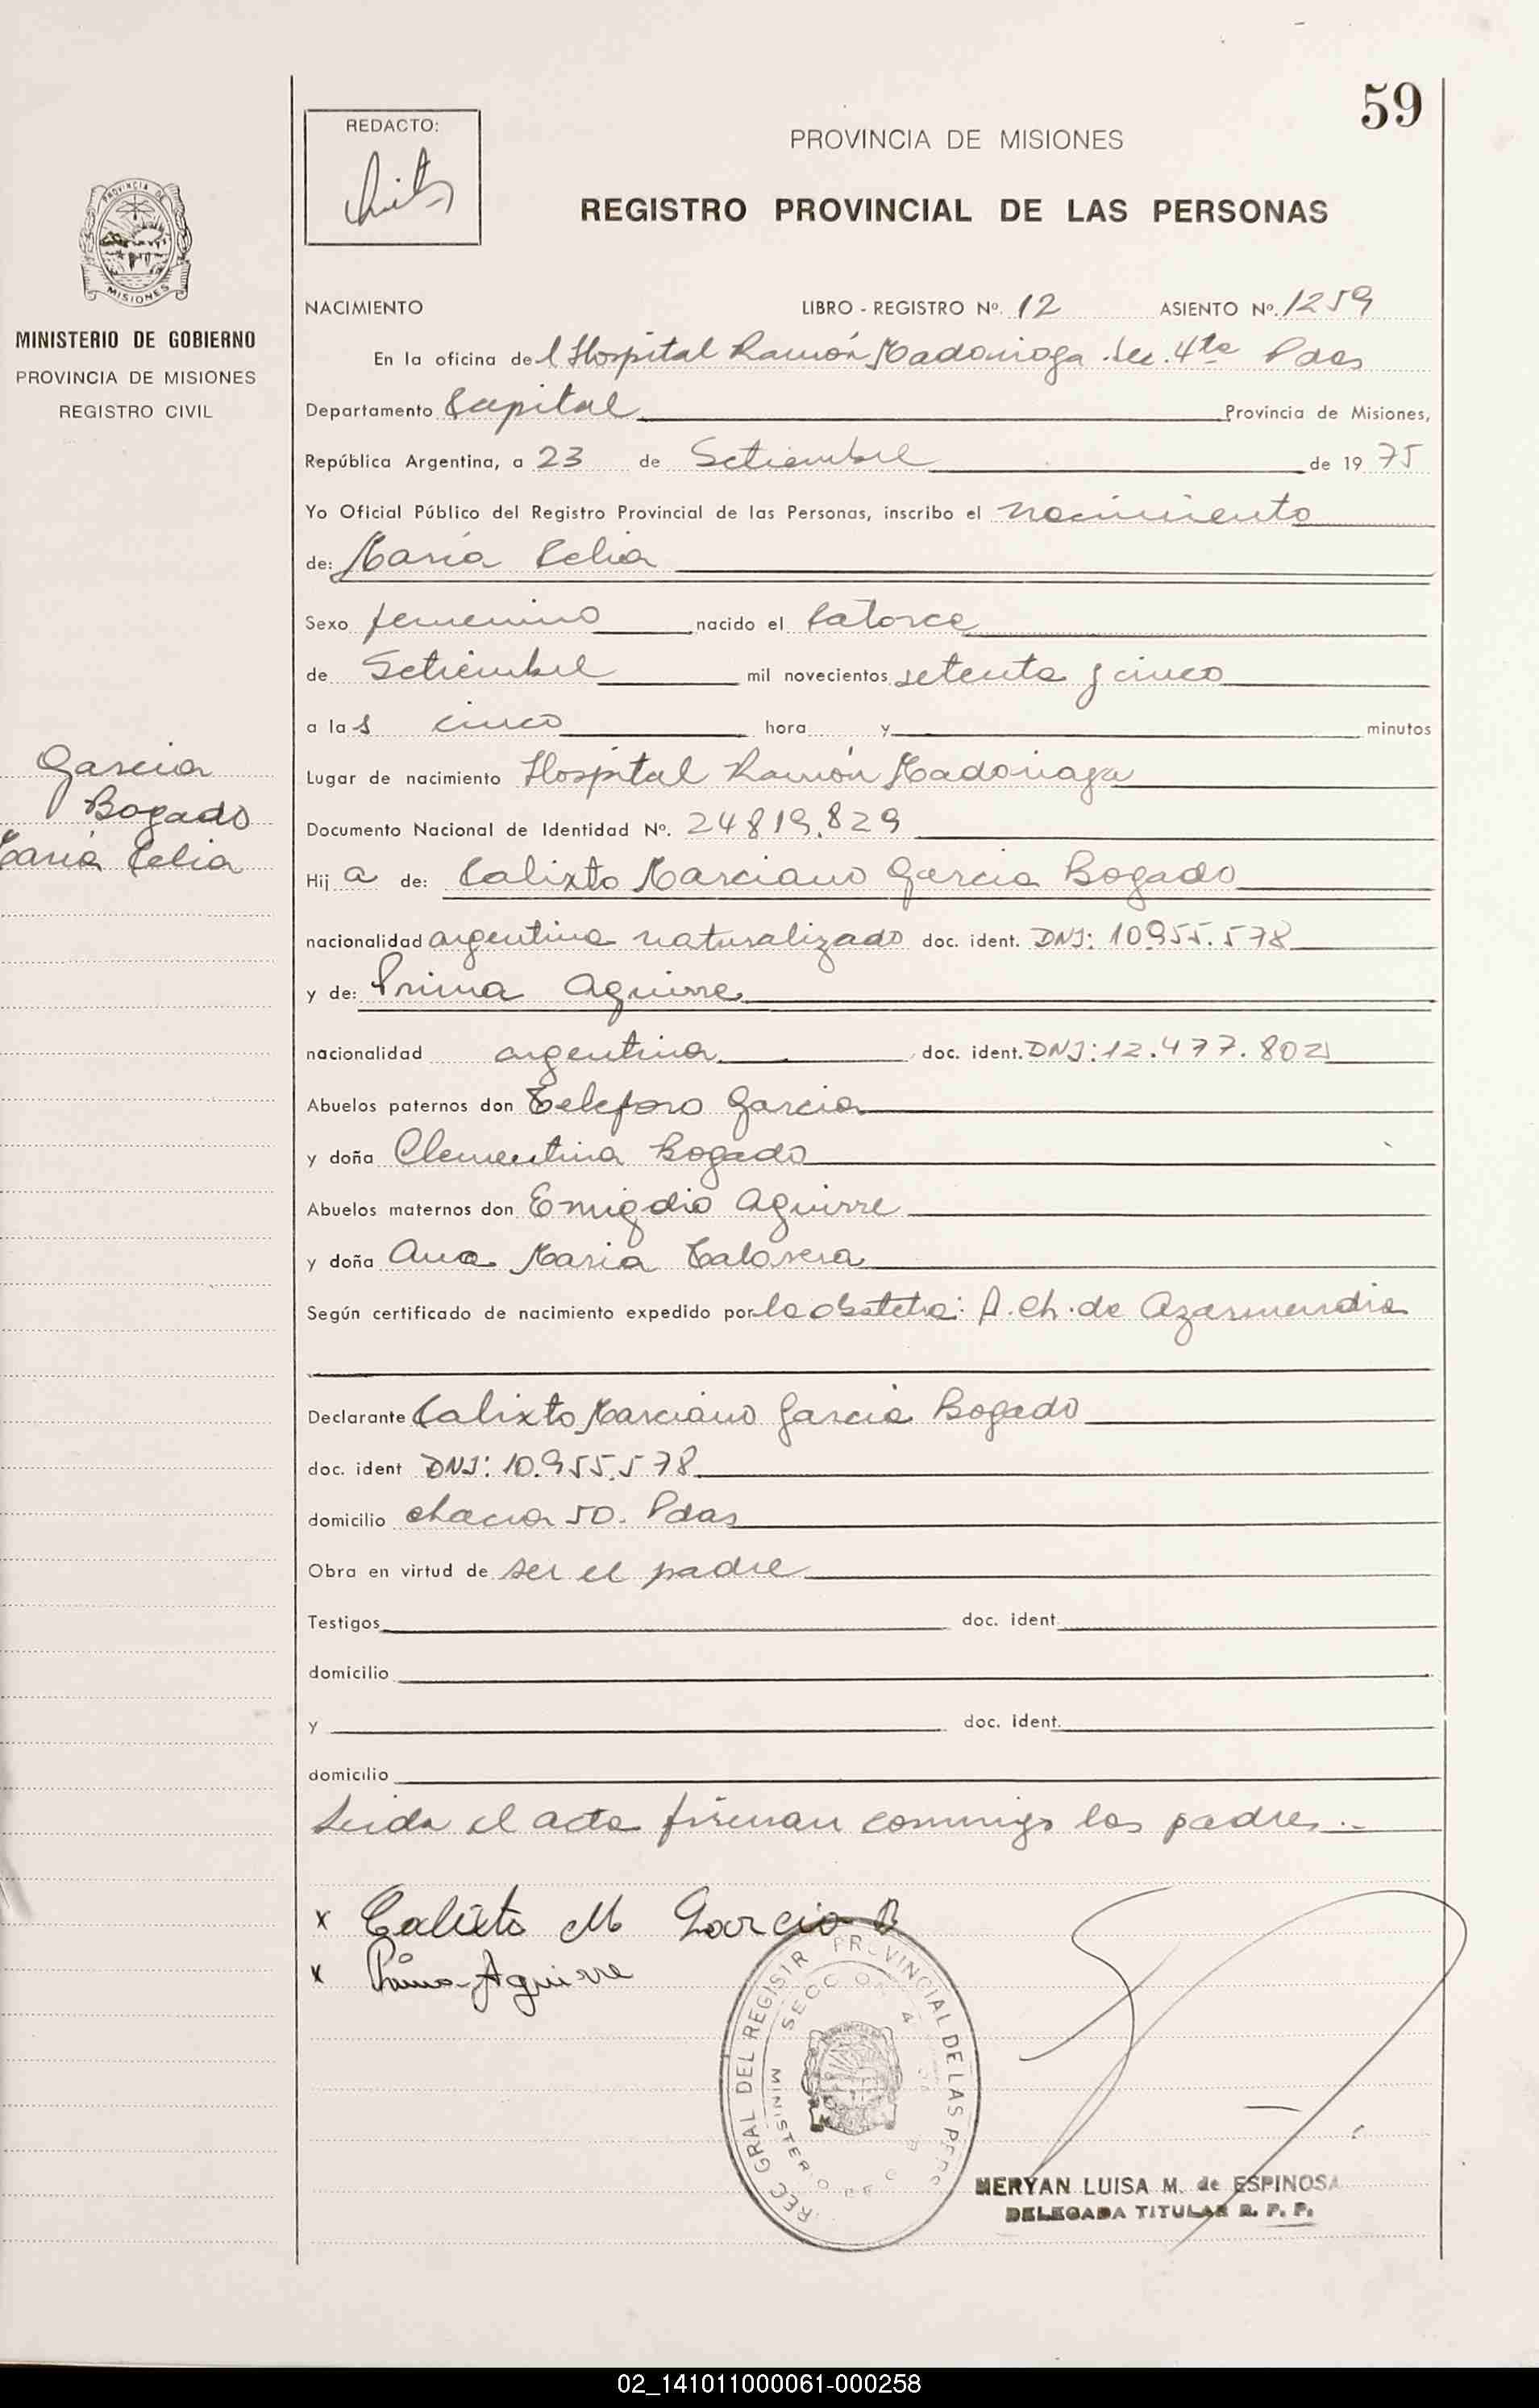 59
REDACTO:
PROVINCIA DE MISIONES
REGISTRO PROVINCIAL DE LAS PERSONAS
PROVINCIA DE
MISIONES
MINISTERIO DE GOBIERNO
PROVINCIA DE MISIONES
REGISTRO CIVIL
NACIMIENTO LIBRO - REGISTRO Nº. 12 ASIENTO Nº. 1259
En la oficina del Hospital Ramón Madariaga. Sec. 4ta Pdas
Departamento Capital Provincia de Misiones,
República Argentina, a 23 de Setiembre de 1975
Yo Oficial Público del Registro Provincial de las Personas, inscribo el nacimiento
de: María Celia
Sexo femenino nacido el Catorce
de Setiembre mil novecientos setenta y cinco
a las cinco hora y minutos
Garcia
Bogado
María Celia
Lugar de nacimiento Hospital Ramón Madariaga
Documento Nacional de Identidad Nº. 24819.829
Hija de: Calixto Marciano Garcia Bogado
nacionalidad argentino naturalizado doc. ident. DNI: 10.955.578
y de: Prima Aguirre
nacionalidad argentina doc. ident. DNI: 12.477.802
Abuelos paternos don Teleforo Garcia
y doña Clementina Bogado
Abuelos maternos don Emigdio Aguirre
y doña Ana Maria Talavera
Según certificado de nacimiento expedido por la obstetra: A. Ch. de Azarmendia
Declarante Calixto Marciano Garcia Bogado
doc. ident DNI: 10.955.578
domicilio chacra 50. Pdas
Obra en virtud de ser el padre
Testigos doc. ident.
domicilio
y doc. ident.
domicilio
Leida el acta firman conmigo los padres.-
x Calixto M Garcia B
x Prima Aguirre
GRAL DEL REGISTR PROVINCIAL DE LAS PERS
SECCION 4
MINISTERIO DE GOB
MERYAN LUISA M. de ESPINOSA
DELEGADA TITULAR R. P. P.
02_141011000061-000258